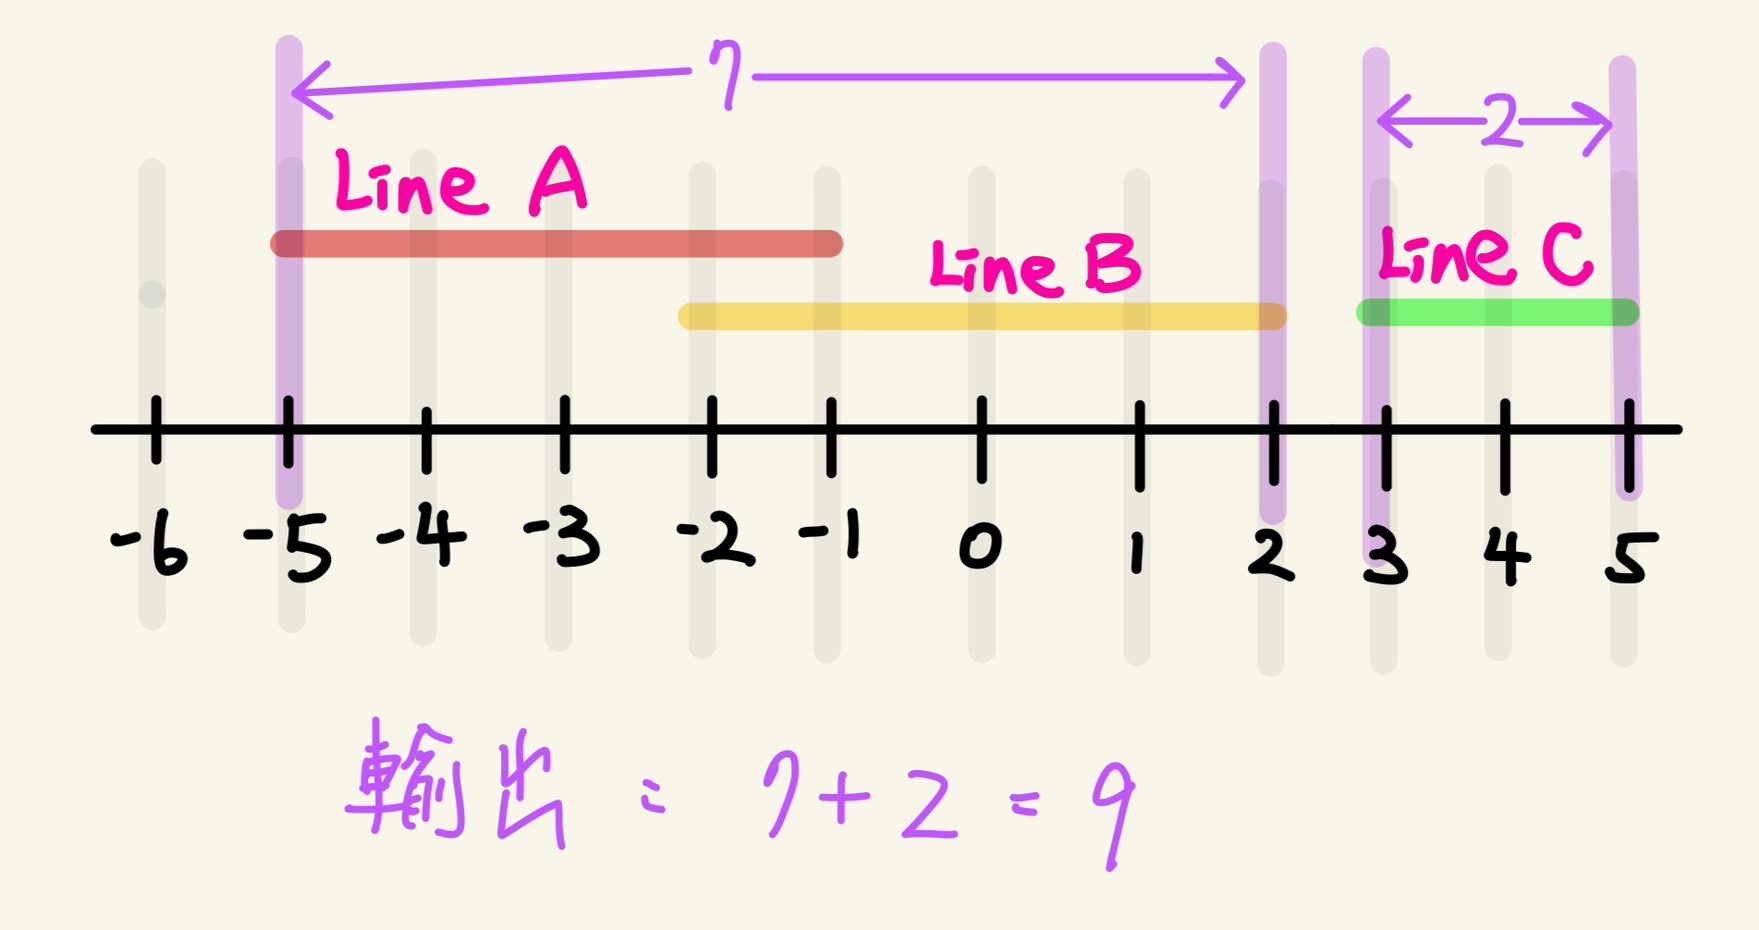 7
2
Line A
Line B
Line C
-6 -5 -4 -3 -2 -1 0 1 2 3 4 5
輸出 = 7 + 2 = 9